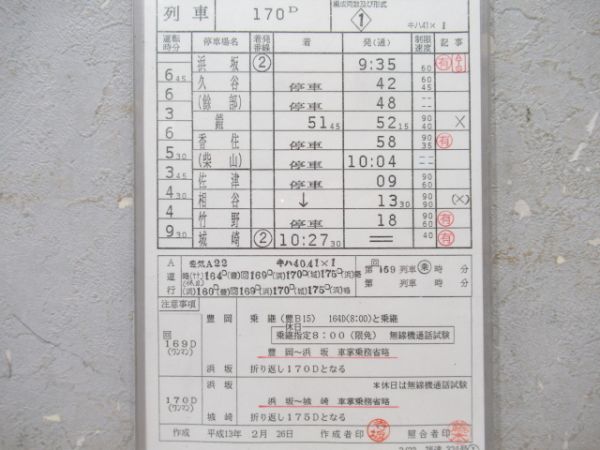 列車 170D 編成両数及び形式 ① キハ41×1
運転時分 停車場名 着発番線 着 発(通) 制限速度 記事
浜坂 ② 9:35 60 有
6 45 久谷 停車 42 60 45
6 (餘部) 停車 48 --
3 鎧 51 45 52 15 90 40 ×
6 香住 停車 58 90 35 有
5 30 (柴山) 10:04 --
3 45 佐津 停車 09 90 60
4 30 相谷 ↓ 13 30 90 90 (×)
4 竹野 停車 18 90 60 有
9 30 城崎 ② 10:27 30 == 40 有
A 豊気A22 キハ40,41×1
運 164D(豊)回169D(浜)170D(城)175D(浜)略
行 (浜)160D(豊)回169D(浜)170D(城)175D(浜)略
第 回169 列車 乗 時 分
第 列車 時 分
注意事項
回 169D (ワンマン)
豊岡 乗継 (豊B15) 164D(8:00)と乗継
休日
乗継指定8:00(限免) 無線機通話試験
豊岡~浜坂 車掌乗務省略
浜坂 折り返し170Dとなる
170D (ワンマン)
浜坂 *休日は無線機通話試験
浜坂~城崎 車掌乗務省略
城崎 折り返し175Dとなる
作成 平成13年 2月 26日 作成者印 照合者印